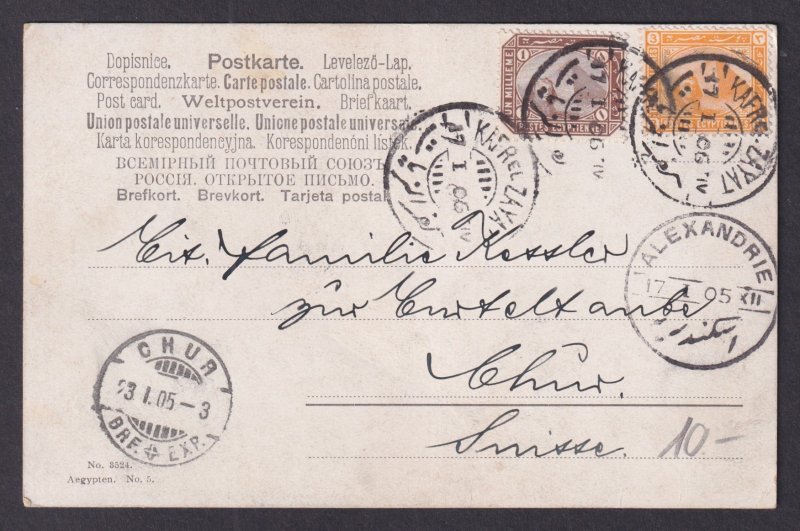 Dopisnice. Postkarte. Levelező-Lap.
Correspondenzkarte. Carte postale. Cartolina postale.
Post card. Weltpostverein. Briefkaart.
Union postale universelle. Unione postale universale
Karta korespondencyjna. Korespondenční lístek.
ВСЕМІРНЫЙ ПОЧТОВЫЙ СОЮЗЪ
РОССІЯ. ОТКРЫТОЕ ПИСЬМО.
Brefkort. Brevkort. Tarjeta postal
1
UN MILLIEME
POSTES EGYPTIENNES
3
KAFR EL ZAYAT
17 I 06
KAFR EL ZAYAT
17 I 06
17 I 06
ALEXANDRIE
17 I 05 XII
اسكندرية
Familie Kessler
zur Turteltaube
Chur.
Suisse.
10.-
CHUR
23 I.05 - 3
BRF. EXP.
No. 3524.
Aegypten. No. 5.